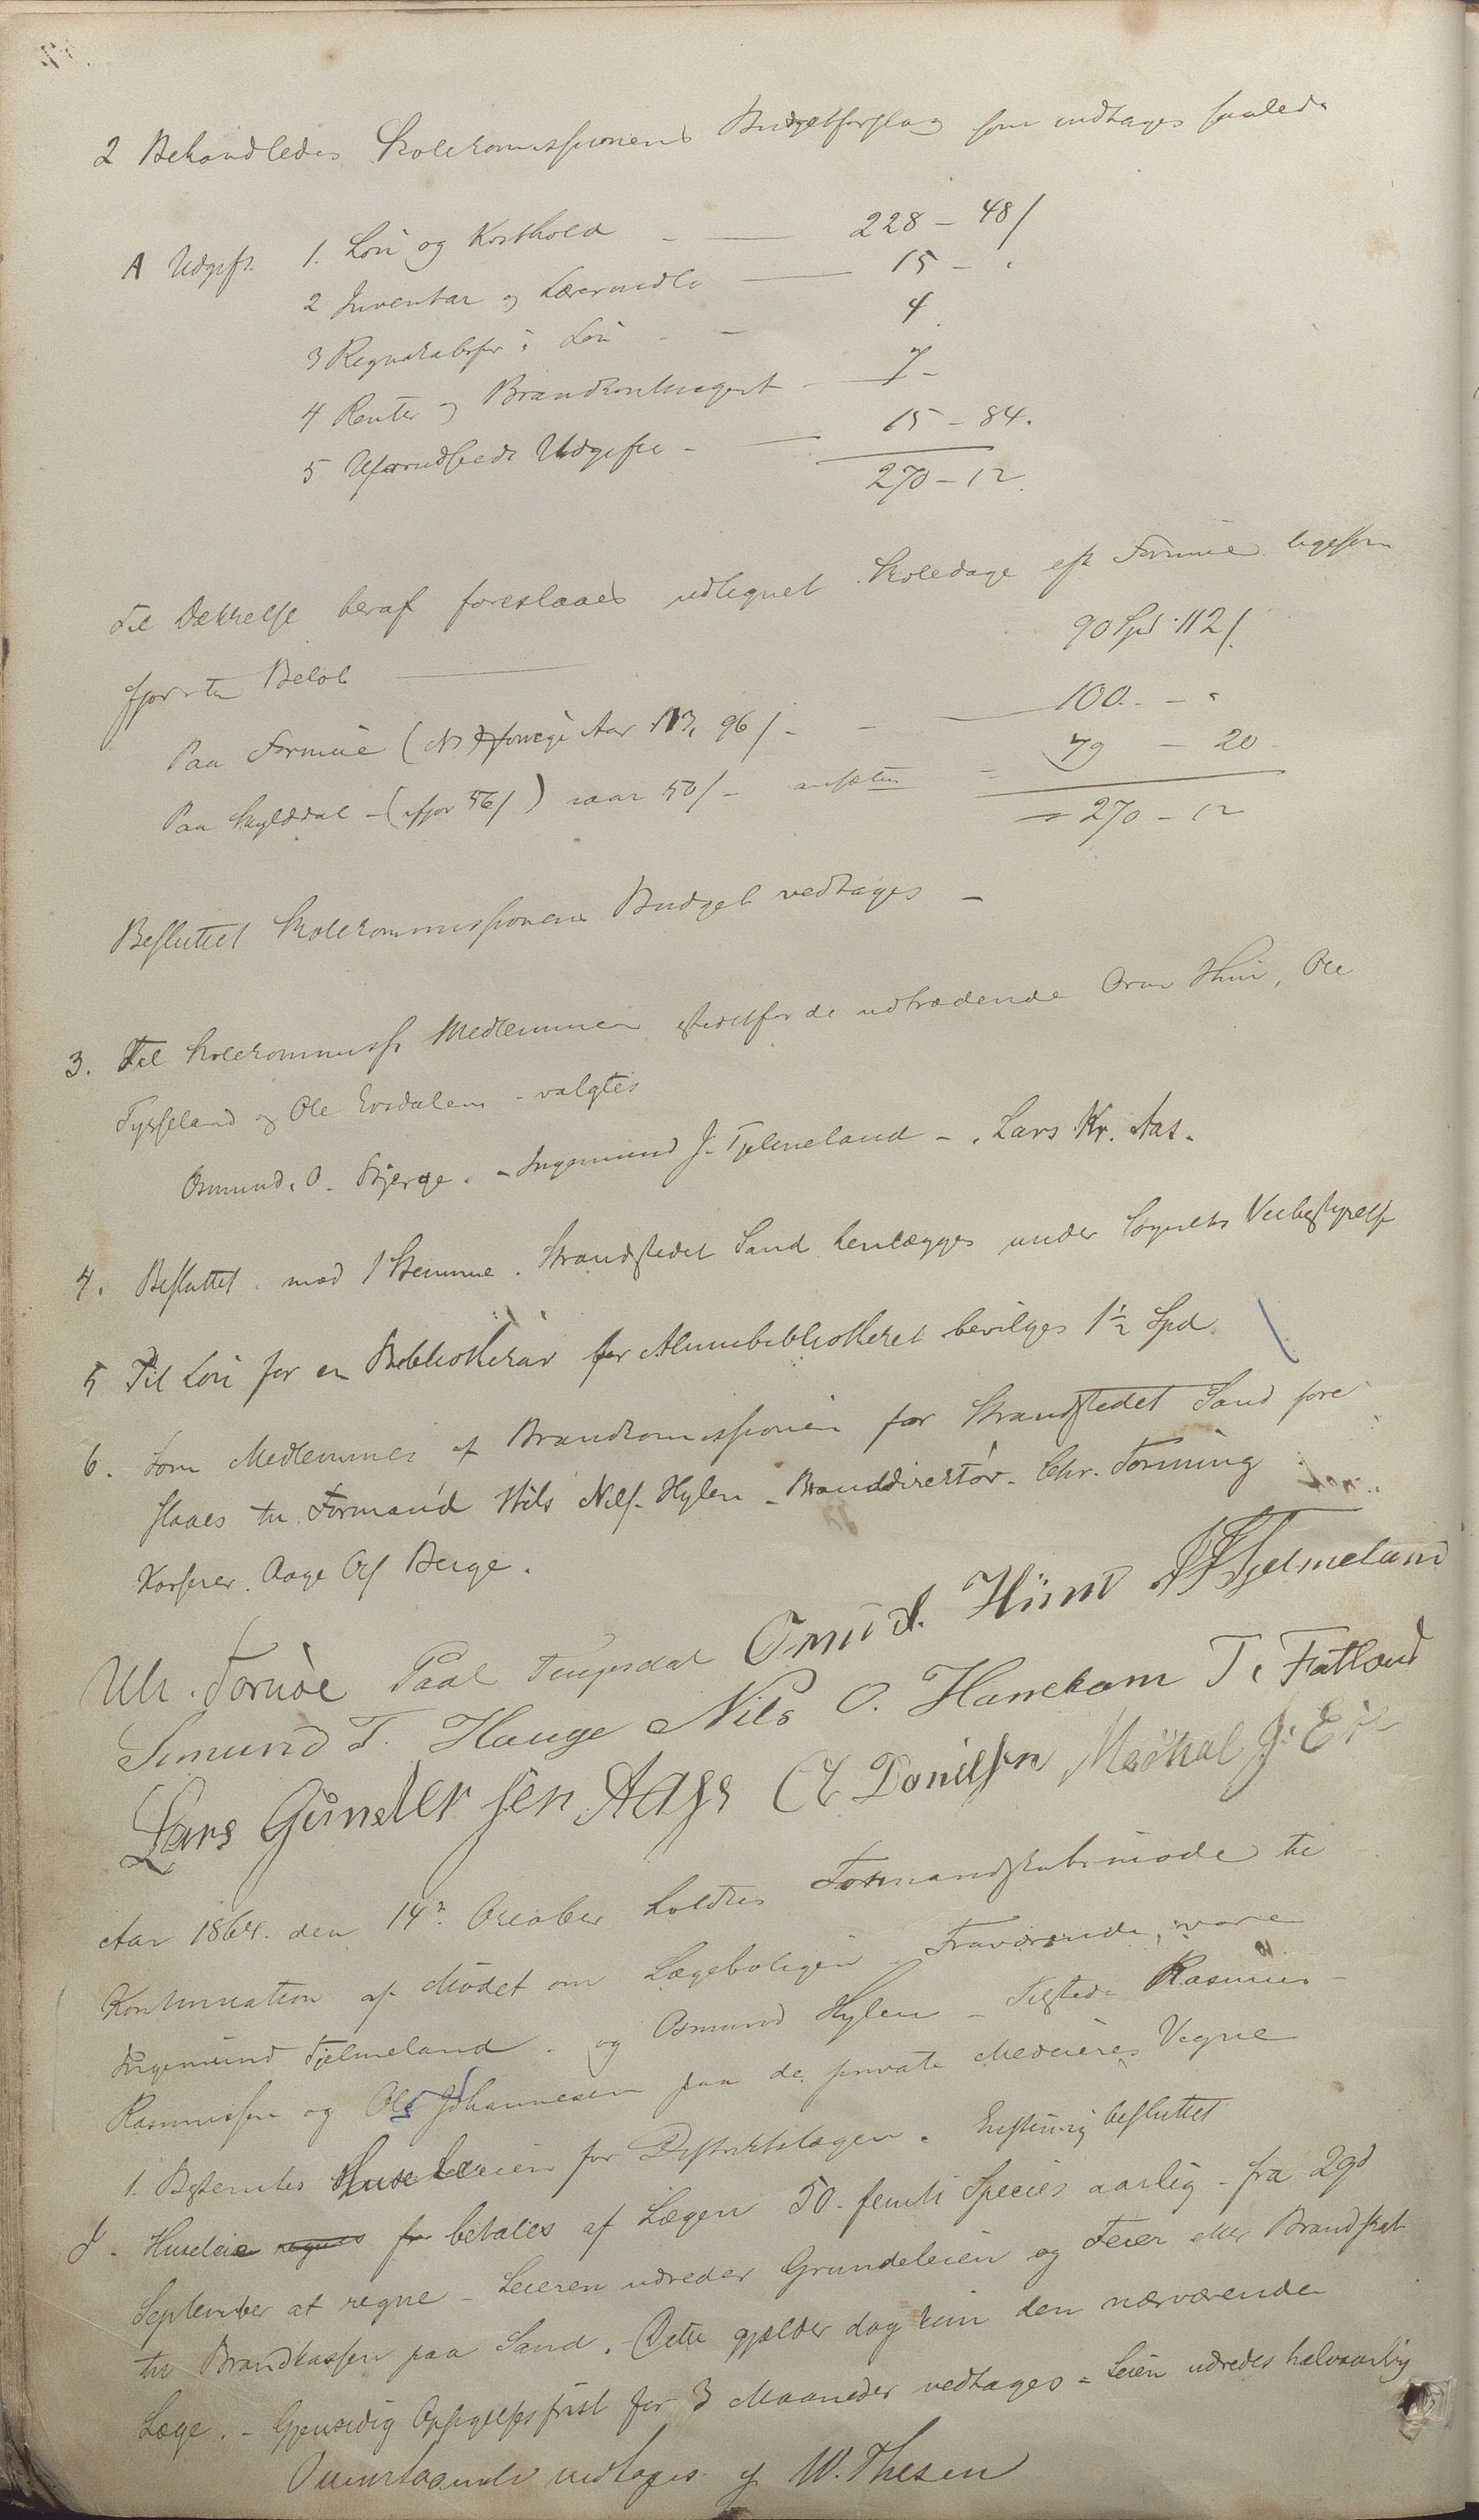 2 Behandledes Skolekommissionens Budgetforslag som vedtages saaledes
A Udgift. 1. Løn og Kosthold - 228 - 48/
2 Inventar og Læremidler 15 -
3 Regnskabsfør: Løn - 4
4 Renter og Brandkontingent - 7 -
5 Uforudseede Udgifter - 15 - 84.
270 - 12.
Til Dækkelse heraf foreslaaes udlignet Skoledage eft Formue ligesom
ifjor et Beløb 90 Spd 112/
Paa Formue ( forrige Aar 113, 96/ - 100. -
Paa Skylddal - (ifjor 56/) iaar 50/ - ansættes = 79 - 20
= 270 - 12
Besluttet Skolekommissionens Budget vedtages -
3. Til Skolekommiss Medlemmer istedetfor de udtrædende Orm Hiim, Ole
Tysseland og Ole Eosdalen - valgtes
Osmund. O. Bjerge. - Ingemund J. Tjelmeland - . Lars Kr. Aas.
4. Besluttet. mod 1 Stemme. Strandstedet Sand henlægges under Sognets Veibestyrelse
5 Til Løn for en Bibliothekar for Almuebibliotheket bevilges 1½ Spd.
6. Som Medlemmer af Brandkommissionen for Strandstedet Sand fore
slaaes til Formand Nils Nils. Hylen - Branddirektør - Chr. Torning
Kasserer. Aage Ols Berge.
Ulr. Tornøe Paal Tengesdal Omund. Hiim J J Tjelmeland
Simund T. Hauge Nils O. Hamekam T. Fatland
Lars Gundersen Aage D Danilsen Meskal J. Eie
Aar 1864. den 14de October holdtes Formandskabsmøde til
Kontinuation af Mødet om Lægeboligen - Fraværende, vare
Ingemund Tjelmeland - og Osmund Hylen - Tilstede Rasmus
Rasmussen og Ole Johannesen paa de private Medeieres Vegne
1. Bestemtes Husleien for Distriktslægen. Enstemig besluttet
J. Husleie regnes fr betales af Lægen 50 - femti Species aarlig - fra 29d
September at regne - Leieren udreder Grundeleien og Feier eller Brandskat
til Brandkassen paa Sand. - Dette gjælder dog kun den nærværende
Læge. - Gjensidig Opsigelsesfrist for 3 Maaneder vedtages - Leien udredes halvaarlig
Ovenstaaende vedtages af W. Thesen